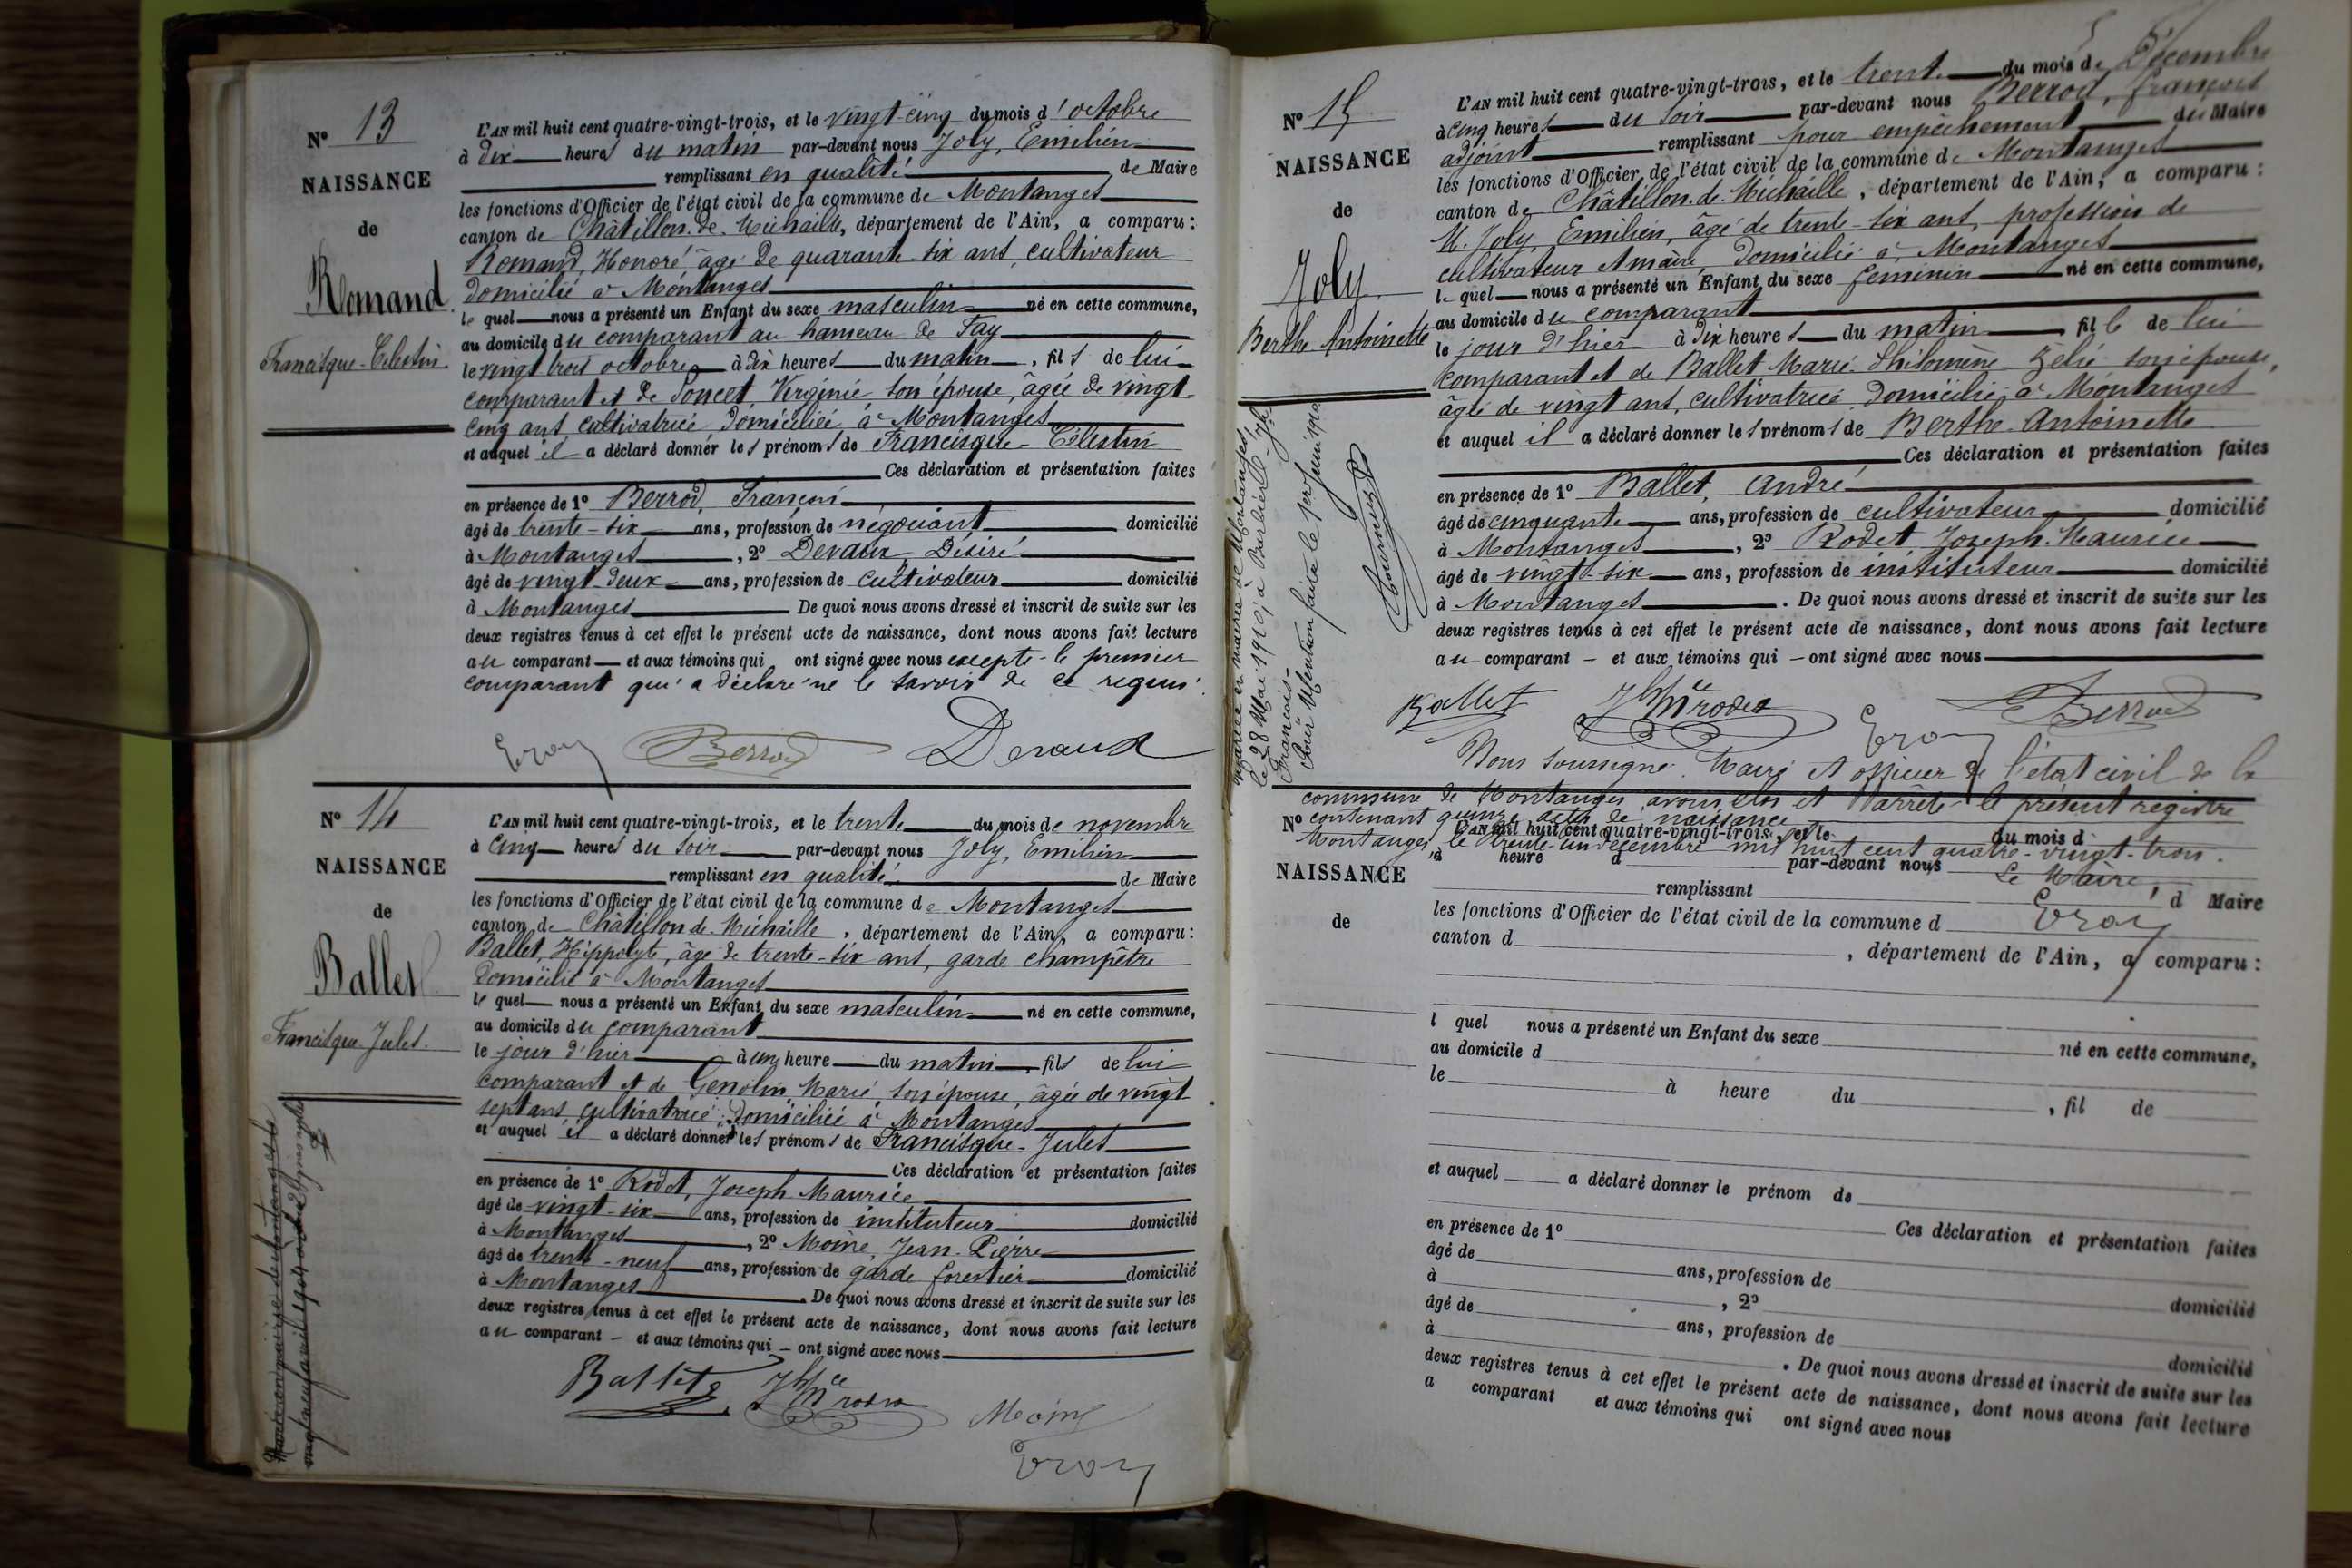 N° 13
NAISSANCE
de
Romand
Francisque-Célestin.
L'AN mil huit cent quatre-vingt-trois, et le vingt-cinq du mois d'octobre
à dix heures du matin par-devant nous Joly, Emilien
remplissant en qualité de Maire
les fonctions d'Officier de l'état civil de la commune de Montanges
canton de Châtillon-de-Michaille, département de l'Ain, a comparu :
Romand, Honoré âgé de quarante-six ans, cultivateur
domicilié à Montanges
le quel nous a présenté un Enfant du sexe masculin né en cette commune,
au domicile du comparant au hameau de Fay
le vingt trois octobre à dix heures du matin, fils de lui
comparant et de Poncet, Virginie, son épouse, âgée de vingt-
cinq ans cultivatrice domiciliée à Montanges
et auquel il a déclaré donner les prénoms de Francisque-Célestin
Ces déclaration et présentation faites
en présence de 1° Berrod, François
âgé de trente-six ans, profession de négociant domicilié
à Montanges, 2° Devaux Désiré
âgé de vingt-deux ans, profession de cultivateur domicilié
à Montanges De quoi nous avons dressé et inscrit de suite sur les
deux registres tenus à cet effet le présent acte de naissance, dont nous avons fait lecture
au comparant et aux témoins qui ont signé avec nous excepté le premier
comparant qui a déclaré ne le savoir de ce requis.
Berrod Devaux
N° 14
NAISSANCE
de
Ballet
Francisque-Jules.
L'AN mil huit cent quatre-vingt-trois, et le trente du mois de novembre
à cinq heures du soir par-devant nous Joly, Emilien
remplissant en qualité de Maire
les fonctions d'Officier de l'état civil de la commune de Montanges
canton de Châtillon-de-Michaille, département de l'Ain, a comparu :
Ballet, Hippolyte, âgé de trente-six ans, garde champêtre
domicilié à Montanges
le quel nous a présenté un Enfant du sexe masculin né en cette commune,
au domicile du comparant
le jour d'hier à une heure du matin, fils de lui
comparant et de Genolin Marie son épouse, âgée de vingt
sept ans, cultivatrice domiciliée à Montanges
et auquel il a déclaré donner les prénoms de Francisque-Jules
Ces déclaration et présentation faites
en présence de 1° Rodet, Joseph Maurice
âgé de vingt-six ans, profession de instituteur domicilié
à Montanges, 2° Moine, Jean-Pierre
âgé de trente-neuf ans, profession de garde forestier domicilié
à Montanges. De quoi nous avons dressé et inscrit de suite sur les
deux registres tenus à cet effet le présent acte de naissance, dont nous avons fait lecture
au comparant et aux témoins qui ont signé avec nous
Ballet Rodet Moine
N° 15
NAISSANCE
de
Joly
Berthe Antoinette
L'AN mil huit cent quatre-vingt-trois, et le trente du mois de Décembre
à cinq heures du soir par-devant nous Berrod, françois
adjoint remplissant pour empêchement du Maire
les fonctions d'Officier de l'état civil de la commune de Montanges
canton de Châtillon-de-Michaille, département de l'Ain, a comparu :
M. Joly, Emilien, âgé de trente-six ans, profession de
cultivateur et maire, domicilié à Montanges
le quel nous a présenté un Enfant du sexe féminin né en cette commune,
au domicile du comparant
le jour d'hier à dix heures du matin, fille de lui
comparant et de Ballet Marie-Philomène-Zélie son épouse,
âgée de vingt ans, cultivatrice domiciliée à Montanges
et auquel il a déclaré donner les prénoms de Berthe-Antoinette
Ces déclaration et présentation faites
en présence de 1° Ballet, André
âgé de cinquante ans, profession de cultivateur domicilié
à Montanges, 2° Rodet Joseph-Maurice
âgé de vingt-six ans, profession de instituteur domicilié
à Montanges. De quoi nous avons dressé et inscrit de suite sur les
deux registres tenus à cet effet le présent acte de naissance, dont nous avons fait lecture
au comparant et aux témoins qui ont signé avec nous
Ballet Rodet Berrod
Mariée en mairie de Montanges,
le 28 Mai 1910, à Barbier
François-
Pour Mention faite le 1er juin 1910
Nous soussigné, Maire et officier de l'état civil de la
commune de Montanges avons clos et arrêté le présent registre
contenant quinze actes de naissance
Montanges, le trente-un décembre mil huit cent quatre-vingt-trois.
Le Maire,
N°
NAISSANCE
de
L'AN mil huit cent quatre-vingt-trois, et le du mois d
à heure d par-devant nous
remplissant d Maire
les fonctions d'Officier de l'état civil de la commune d
canton d , département de l'Ain, a comparu :
l quel nous a présenté un Enfant du sexe né en cette commune,
au domicile d
le à heure du , fil de
et auquel a déclaré donner le prénom de
Ces déclaration et présentation faites
en présence de 1°
âgé de ans, profession de domicilié
à , 2°
âgé de ans, profession de domicilié
à . De quoi nous avons dressé et inscrit de suite sur les
deux registres tenus à cet effet le présent acte de naissance, dont nous avons fait lecture
a comparant et aux témoins qui ont signé avec nous